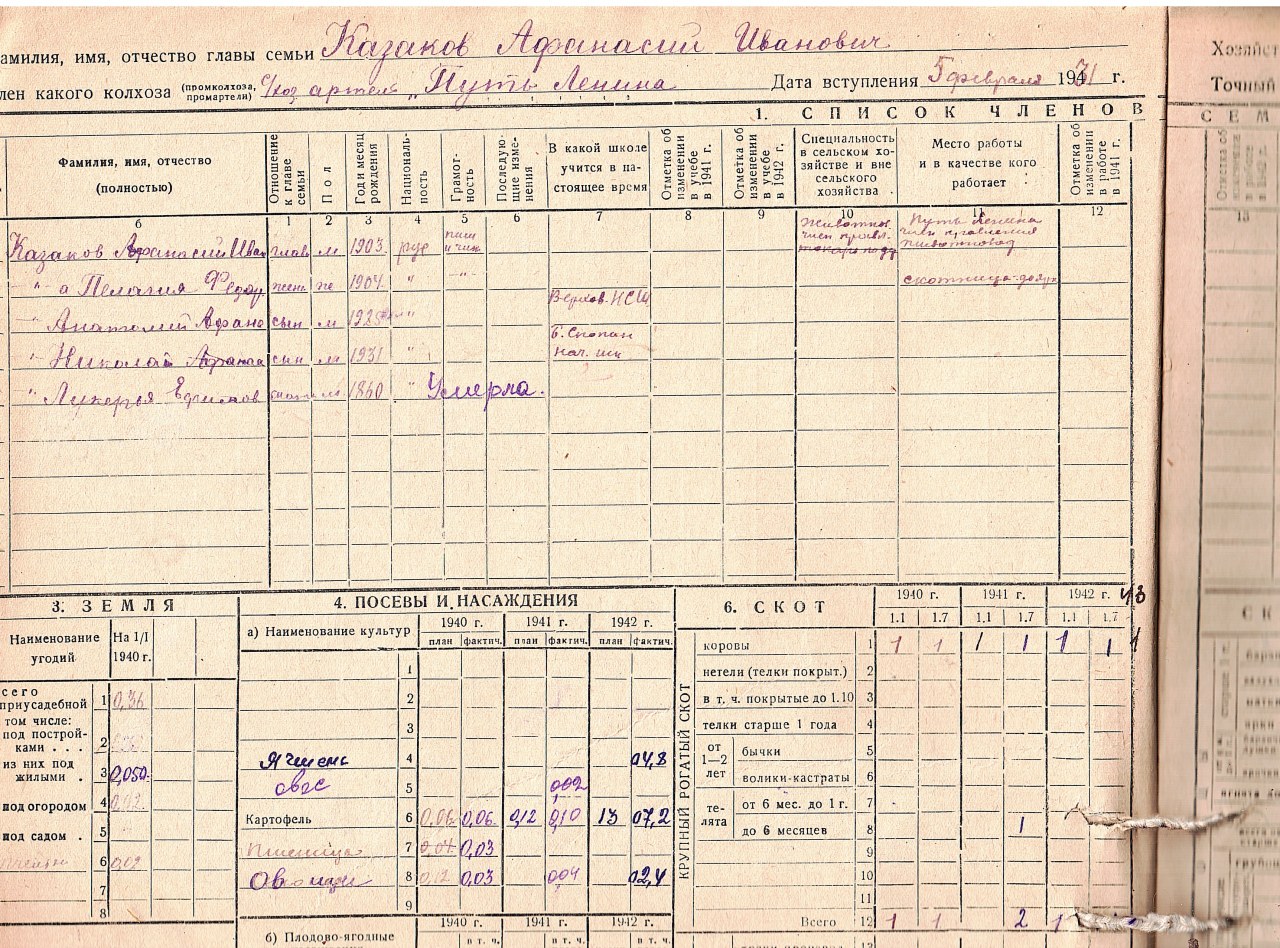 амилия, имя, отчество главы семьи Казаков Афанасий Иванович
лен какого колхоза (промколхоза, промартели) с/хоз артель „Путь Ленина Дата вступления 5 февраля 1931 г.
1. СПИСОК ЧЛЕНОВ
Фамилия, имя, отчество (полностью) Отношение к главе семьи Пол Год и месяц рождения Националь-ность Грамот-ность Последую-щие изме-нения В какой школе учится в на-стоящее время Отметка об изменении в учебе в 1941 г. Отметка об изменении в учебе в 1942 г. Специальность в сельском хо-зяйстве и вне сельского хозяйства Место работы и в качестве кого работает Отметка об изменении в работе в 1941 г.
б 1 2 3 4 5 6 7 8 9 10 11 12
Казаков Афанасий Иван глав м 1903 рус Животнов. член правл. Путь Ленина член правления животновод
-"- а Пелагия Федор. жен. же 1904 " -"- скотница-доярк
-"- Анатолий Афана сын м " Верхов. НСШ
-"- Николай Афанса сын м 1931 " нач. шк
-"- Лукерья Ефимов 1860 " Умерла.
3. ЗЕМЛЯ
Наименование угодий На 1/I 1940 г.
сего приусадебной 1 0,36
том числе: под построй-ками . . . 2
из них под жилыми . 3 0,050
под огородом 4
под садом . 5
6 0,02
7
8
4. ПОСЕВЫ И НАСАЖДЕНИЯ
а) Наименование культур 1940 г. 1941 г. 1942 г.
план фактич. план фактич. план фактич.
1
2
3
Ячмень 4 04,8
овес 5 002
Картофель 6 0,06 0,06 0,12 0,10 13 07,2
Пшеница 7 0,04 0,03
Овощи 8 0,12 0,03 004 02,4
9
1940 г. 1941 г. 1942 г.
б) Плодово-ягодные в т. ч. в т. ч. в т. ч.
6. СКОТ 1940 г. 1941 г. 1942 г. 43
1.1 1.7 1.1 1.7 1.1 1.7
КРУПНЫЙ РОГАТЫЙ СКОТ
коровы 1 1 1 1 1 1 1 1
нетели (телки покрыт.) 2
в т. ч. покрытые до 1.10 3
телки старше 1 года 4
от 1—2 лет бычки 5
волики-кастраты 6
те-лята от 6 мес. до 1 г. 7
до 6 месяцев 8 1
9
10
11
Всего 12 1 1 2 1
Хозяйст
Точный
СЕМ
13
СК